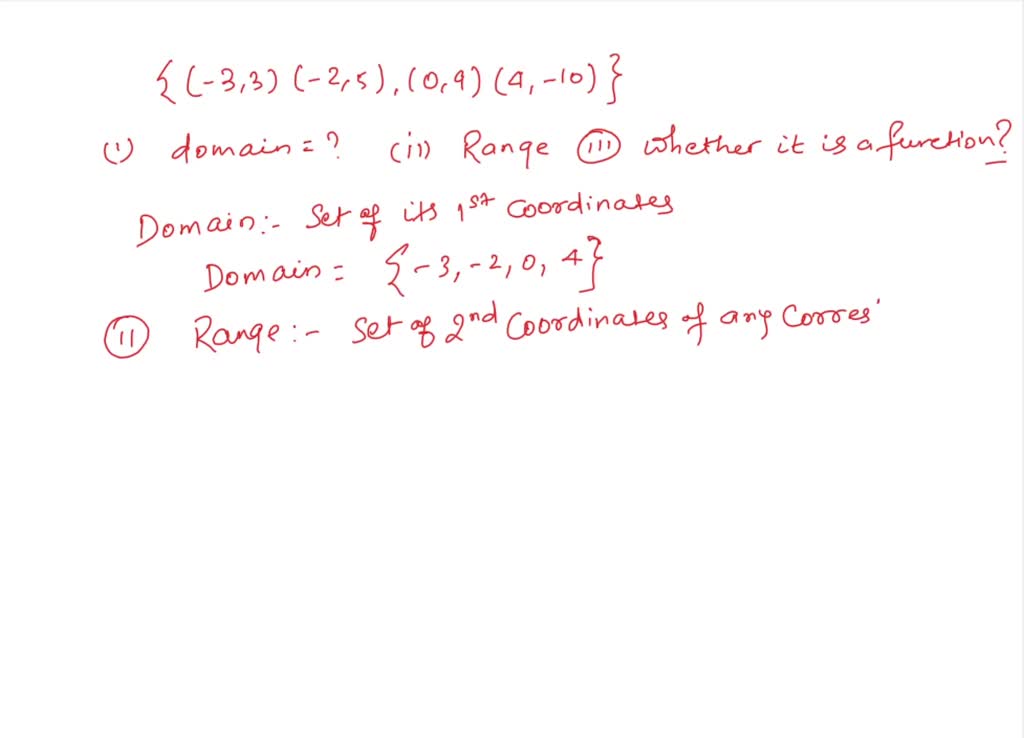 {(-3,3) (-2,5), (0,9) (4,-10)}
(i) domain = ? (ii) Range (iii) whether it is a function?
Domain:- Set of its 1st coordinates
Domain = {-3, -2, 0, 4}
(ii) Range:- Set of 2nd Coordinates of any Corres'